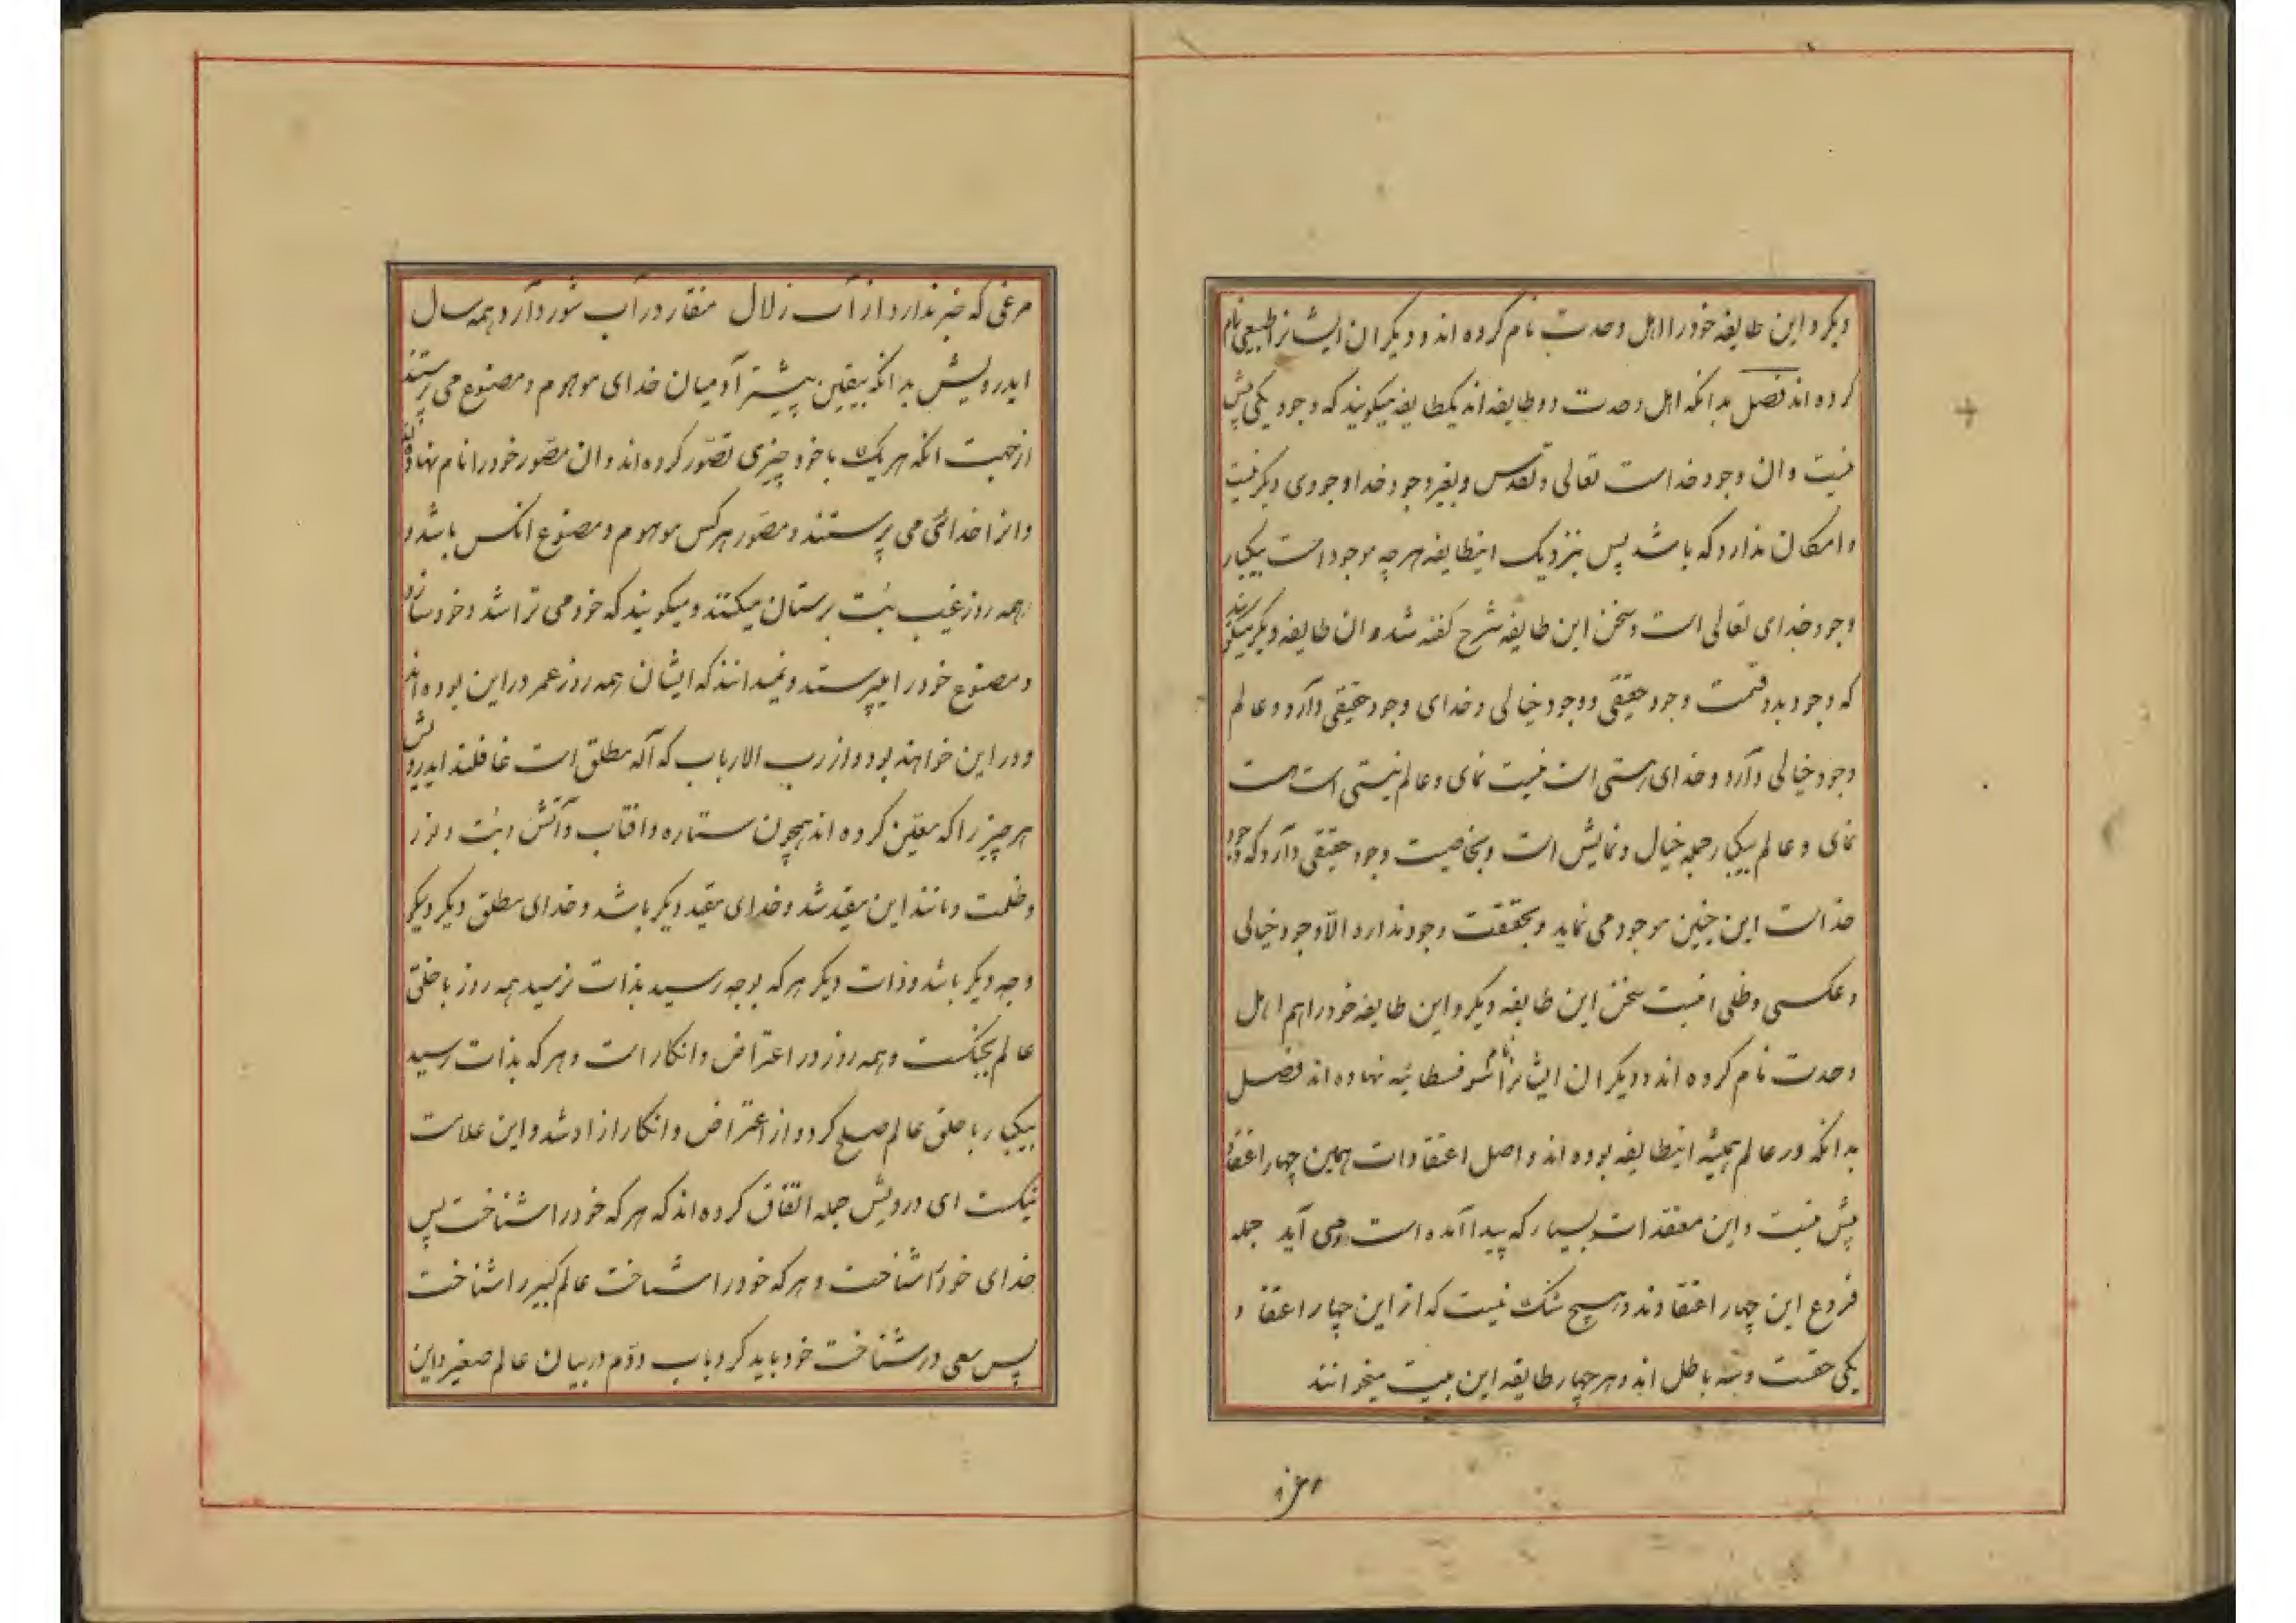 دیگر و این طایفه خود را اهل وحدت نام کرده اند و دیگران ایشانرا طبیعی نام
کرده اند فصل بدانکه اهل وحدت دو طایفه اند یکطایفه میگویند که وجود یکی پیش
نیست و ان وجود خداست تعالی و تقدس و بغیر وجود خدا وجودی دیگر نیست
و امکان ندارد که باشد پس بنزدیک اینطایفه هرچه موجود است بیکبار
وجود خدای تعالی است و سخن این طایفه شرح گفته شد و ان طایفه دیگر میگویند
که وجود بدو قسمت وجود حقیقی و وجود خیالی و خدای وجود حقیقی دارد و عالم
وجود خیالی دارد و خدای هستی است نیست نمای و عالم نیستی است هست
نمای و عالم بیکبار جمله خیال و نمایش است و بخاصیت وجود حقیقی دارد که وجود
خداست این چنین موجود می نماید و بحقیقت وجود ندارد الا وجود خیالی
و عکسی و ظلی اینست سخن این طایفه دیگر و این طایفه خود را هم اهل
وحدت نام کرده اند و دیگران ایشانرا نام سوفسطائیه نهاده اند فصل
بدانکه در عالم همیشه اینطایفه بوده اند و اصل اعتقادات همین چهار اعتقاد
پیش نیست و این معتقدات بسیار که پیدا آمده است و می آید جمله
فروع این چهار اعتقادند و هیچ شک نیست که از این چهار اعتقاد
یکی حقست و سه باطل اند و هر چهار طایفه این بیت میخوانند
مرغی که خبر ندارد از آب زلال منقار در آب شور دارد همه سال
ایدرویش بدانکه بیقین بیشتر آدمیان خدای موهوم و مصنوع می پرستند
از جهت انکه هر یک با خود چیزی تصور کرده اند و ان مصور خود را نام نهاده
و انرا خدائی می پرستند و مصور هرکس موهوم و مصنوع انکس باشد و
همه روز عیب بت پرستان میکنند و میگویند که خود می تراشد و خود سازد
و مصنوع خود را میپرستد و نمیدانند که ایشان همه روز عمر در این بوده اند
و در این خواهند بود و از رب الارباب که آله مطلق است غافلند ایدرویش
هر چیز را که معین کرده اند همچون ستاره و افتاب و آتش و بت و نور
و ظلمت و مانند این مقید شد و خدای مقید دیگر باشد و خدای مطلق دیگر دیگر
وجه دیگر باشد و ذات دیگر هر که بوجه رسید بذات نرسید همه روز با خلق
عالم بجنگست و همه روز در اعتراض و انکار است و هر که بذات رسید
بیکبار با خلق عالم صلح کرد و از اعتراض و انکار ازاد شد و این علامت
نیکست ای درویش جمله اتفاق کرده اند که هر که خود را شناخت پس
خدای خود را شناخت و هر که خود را شناخت عالم کبیر را شناخت
پس سعی در شناخت خود باید کرد باب دوم در بیان عالم صغیر و این